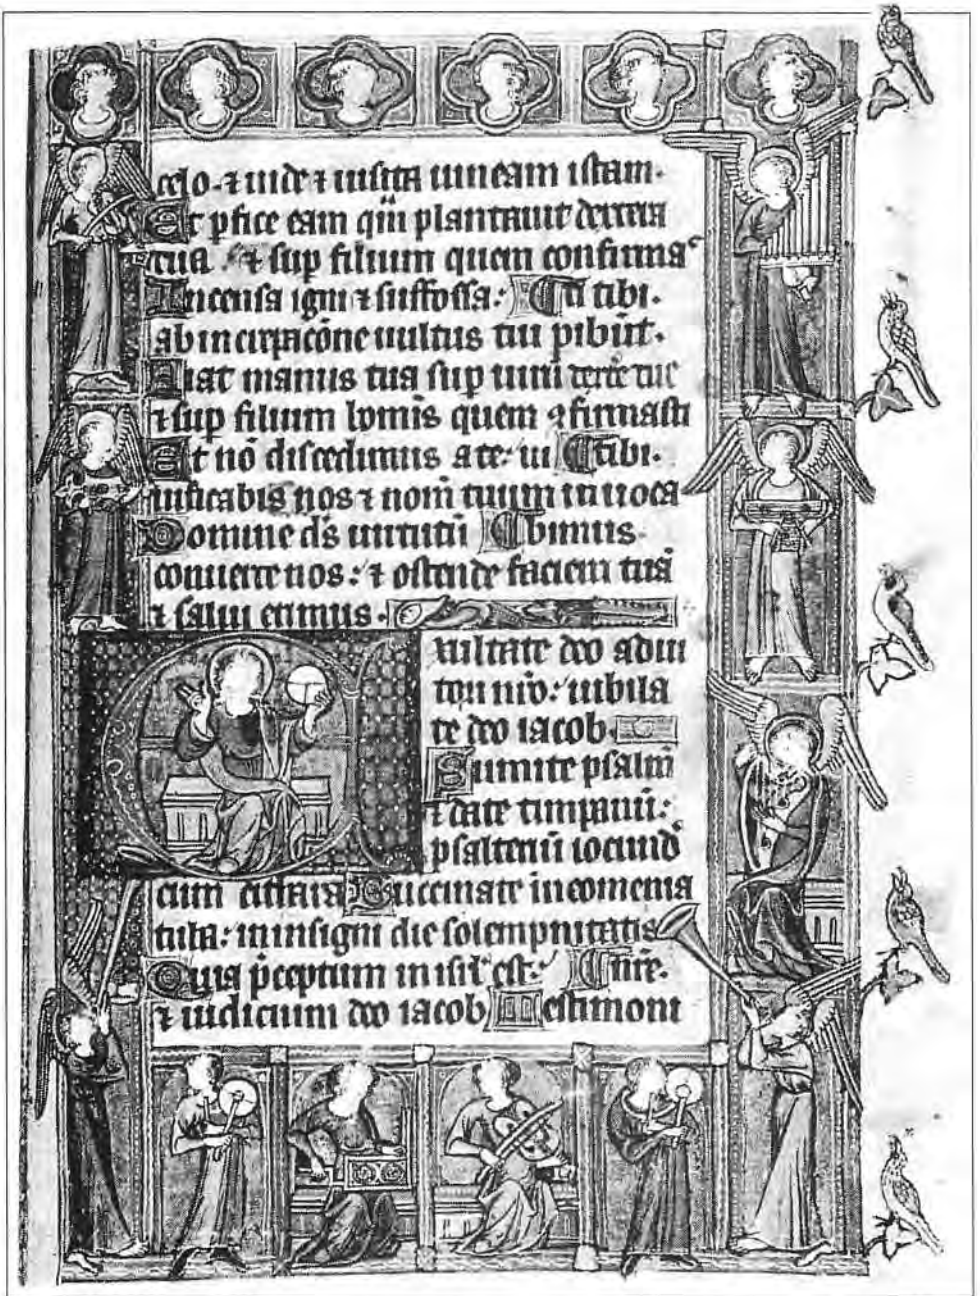 celo · ⁊ uide ⁊ uisita uineam istam·
Et pfice eam quā plantauit dextera
tua : ⁊ sup filium quem confirma
Incensa igni ⁊ suffossa : ¶ sti tibi·
ab increpacōne uultus tui pibūt·
Fiat manus tua sup uirū dextre tue
⁊ sup filium homīs quem ꝯfirmasti
Et nō discedimus a te : ui ¶ tibi·
uificabis nos ⁊ nom̄ tuum inuoca
Domine ds̄ uirtutū ¶ bimus·
conuerte nos : ⁊ ostende faciem tuā
⁊ salui erimus·
Exultate deo adiu
tori nr̄o : iubila
te deo iacob·
Sumite psalm̄
⁊ date timpanū :
psalteriū iocund
cum cithara Buccinate in neomenia
tuba : in insigni die solempnitatis
Quia p̄ceptum in isrl est : ¶ nr̄e·
⁊ iudicium deo iacob Testimoni